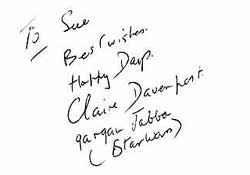 To Sue
Best wishes.
Happy Days.
Claire Davenport.
qargan Jabba
(Starwars)